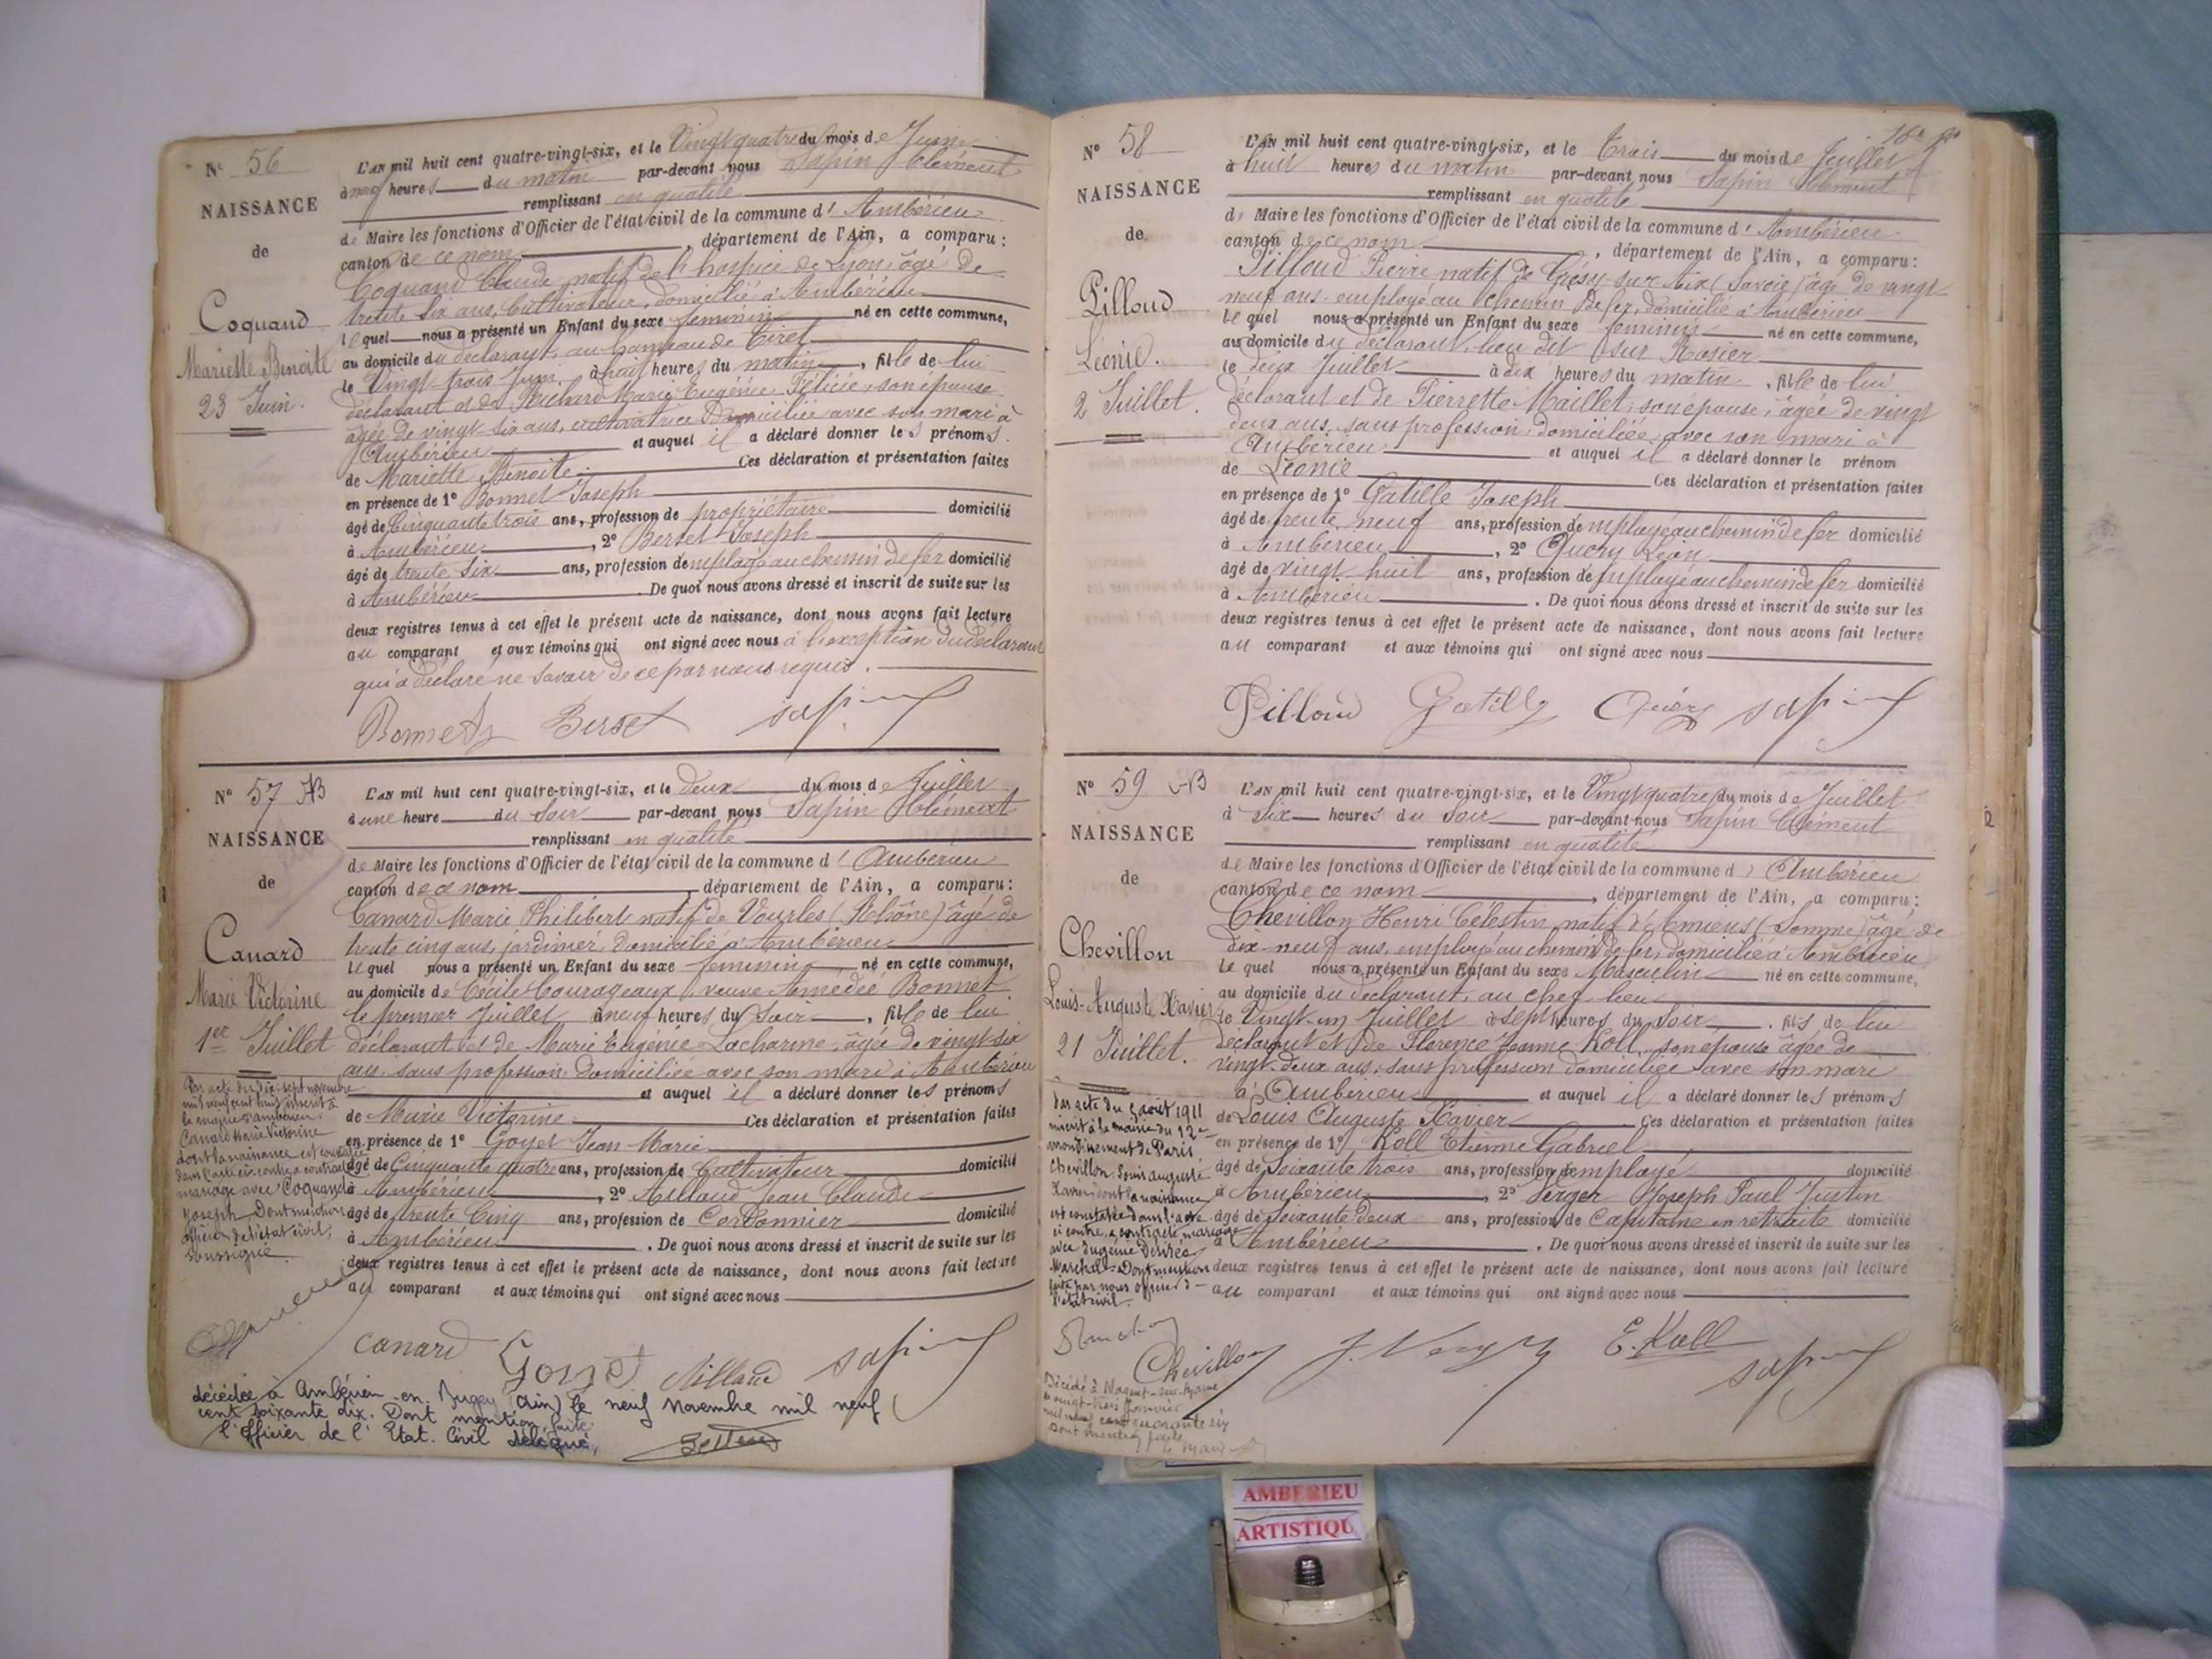 N° 56
NAISSANCE
de
Coquand
Mariette Benoite
23 Juin.
L'AN mil huit cent quatre-vingt-six, et le Vingt quatre du mois de Juin
à neuf heures du matin par-devant nous Sapin Clément
remplissant en qualité
de Maire les fonctions d'Officier de l'état civil de la commune d'Ambérieu
canton de ce nom, département de l'Ain, a comparu :
Coquand Claude natif de l'hospice de Lyon, âgé de
trente six ans, Cultivateur, domicilié à Ambérieu
lequel nous a présenté un Enfant du sexe feminin né en cette commune,
au domicile du déclarant, au hameau de Tiret
le Vingt trois Juin, à heures du matin, fille de lui
déclarant et de Richard Marie Eugénie Félicie, son épouse
âgée de vingt six ans, cultivatrice Domiciliée avec son mari à
Ambérieu et auquel il a déclaré donner les prénoms
de Mariette Benoite Ces déclaration et présentation faites
en présence de 1° Bonnet Joseph
âgé de Cinquante trois ans, profession de propriétaire domicilié
à Ambérieu, 2° Berset Joseph
âgé de trente six ans, profession d'employé au chemin de fer domicilié
à Ambérieu. De quoi nous avons dressé et inscrit de suite sur les
deux registres tenus à cet effet le présent acte de naissance, dont nous avons fait lecture
au comparant et aux témoins qui ont signé avec nous à l'exception du déclarant
qui a déclaré ne savoir de ce par nous requis.
Bonnet Berset Sapin
N° 57 AB
NAISSANCE
de
Canard
Marie Victorine
1er Juillet
Par acte du dix-sept novembre
mil neuf cent huit inscrit à
la mairie d'Ambérieu,
Canard Marie Victorine
dont la naissance est constatée
dans l'acte ci-contre a contracté
mariage avec Coquand
Joseph. Dont mention
officier de l'état civil,
soussigné.
L'AN mil huit cent quatre-vingt-six, et le deux du mois de Juillet
à une heure du Soir par-devant nous Sapin Clément
remplissant en qualité
de Maire les fonctions d'Officier de l'état civil de la commune d'Ambérieu
canton de ce nom, département de l'Ain, a comparu :
Canard Marie Philibert natif de Vourles (Rhône) âgé de
trente cinq ans, jardinier, Domicilié à Ambérieu
lequel nous a présenté un Enfant du sexe feminin, né en cette commune,
au domicile de Cécile Courageaux, veuve Amédée Bonnet
le premier Juillet à neuf heures du Soir, fille de lui
déclarant et de Marie Eugénie Lacharme, âgée de vingt-six
ans, sans profession, Domiciliée avec son mari à Ambérieu
et auquel il a déclaré donner les prénoms
de Marie Victorine Ces déclaration et présentation faites
en présence de 1° Goyet Jean Marie
âgé de Cinquante quatre ans, profession de Cultivateur domicilié
à Ambérieu, 2° Jean Claude
âgé de trente Cinq ans, profession de Cordonnier domicilié
à Ambérieu. De quoi nous avons dressé et inscrit de suite sur les
deux registres tenus à cet effet le présent acte de naissance, dont nous avons fait lecture
au comparant et aux témoins qui ont signé avec nous
Canard Goyet Sapin
décédée à Ambérieu-en-Bugey (Ain) le neuf novembre mil neuf
cent soixante dix. Dont mention faite
l'Officier de l'Etat-Civil délégué,
N° 58
NAISSANCE
de
Pilloud
Léonie.
2 Juillet.
L'AN mil huit cent quatre-vingt-six, et le Trois du mois de Juillet
à huit heures du matin par-devant nous Sapin Clément
remplissant en qualité
de Maire les fonctions d'Officier de l'état civil de la commune d'Ambérieu
canton de ce nom, département de l'Ain, a comparu :
Pilloud Pierre natif de Grésy-sur-Aix (Savoie) âgé de vingt
neuf ans, employé au chemin De fer, domicilié à Ambérieu
lequel nous a présenté un Enfant du sexe feminin né en cette commune,
au domicile du déclarant, lieu dit sur Rosier
le deux Juillet à dix heures du matin, fille de lui
déclarant et de Pierrette Maillet, son épouse, âgée de vingt
deux ans, sans profession, domiciliée avec son mari à
Ambérieu et auquel il a déclaré donner le prénom
de Léonie Ces déclaration et présentation faites
en présence de 1° Gatille Joseph
âgé de trente neuf ans, profession d'employé au chemin de fer domicilié
à Ambérieu, 2° Léon
âgé de vingt huit ans, profession d'employé au chemin de fer domicilié
à Ambérieu. De quoi nous avons dressé et inscrit de suite sur les
deux registres tenus à cet effet le présent acte de naissance, dont nous avons fait lecture
au comparant et aux témoins qui ont signé avec nous
Pilloud Gatille Sapin
N° 59
NAISSANCE
de
Chevillon
Louis-Auguste Xavier
21 Juillet.
Par acte du 5 août 1911
inscrit à la mairie du 12e
arrondissement de Paris,
Chevillon Louis Auguste
Xavier dont la naissance
est constatée dans l'acte
ci contre, a contracté mariage
avec Eugénie Désirée
Maréchal. Dont mention
faite par nous officier de
l'état civil.
L'AN mil huit cent quatre-vingt-six, et le Vingt quatre du mois de Juillet
à Six heures du Soir par-devant nous Sapin Clément
remplissant en qualité
de Maire les fonctions d'Officier de l'état civil de la commune d'Ambérieu
canton de ce nom, département de l'Ain, a comparu :
Chevillon Henri Célestin natif d'Amiens (Somme) âgé de
dix-neuf ans, employé au chemin de fer, domicilié à Ambérieu
lequel nous a présenté un Enfant du sexe Masculin né en cette commune,
au domicile du déclarant, au chef lieu
le Vingt-un Juillet à sept heures du Soir. fils de lui
déclarant et de Florence Jeanne Koll, son épouse âgée de
vingt-deux ans, sans profession domiciliée avec son mari
à Ambérieu et auquel il a déclaré donner les prénoms
de Louis Auguste Xavier Ces déclaration et présentation faites
en présence de 1° Koll Etienne Gabriel
âgé de Soixante trois ans, profession d'employé domicilié
à Ambérieu, 2° Verger Joseph Paul Justin
âgé de Soixante Deux ans, profession de Capitaine en retraite domicilié
à Ambérieu. De quoi nous avons dressé et inscrit de suite sur les
deux registres tenus à cet effet le présent acte de naissance, dont nous avons fait lecture
au comparant et aux témoins qui ont signé avec nous
Chevillon E. Koll Sapin
Décédé à Nogent-sur-Marne
le vingt-trois Janvier
mil neuf cent quarante six
Dont mention faite
AMBERIEU
ARTISTIQU